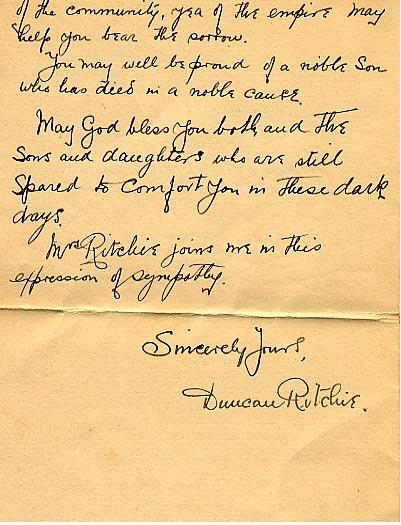 of the community, yea of the empire may
help you bear the sorrow.
You may well be proud of a noble Son
who has died in a noble cause.
May God bless you both and the
Sons and daughters who are still
Spared to Comfort you in these dark
days.
Mrs Ritchie joins me in this
expression of sympathy.
Sincerely Yours,
Duncan Ritchie.